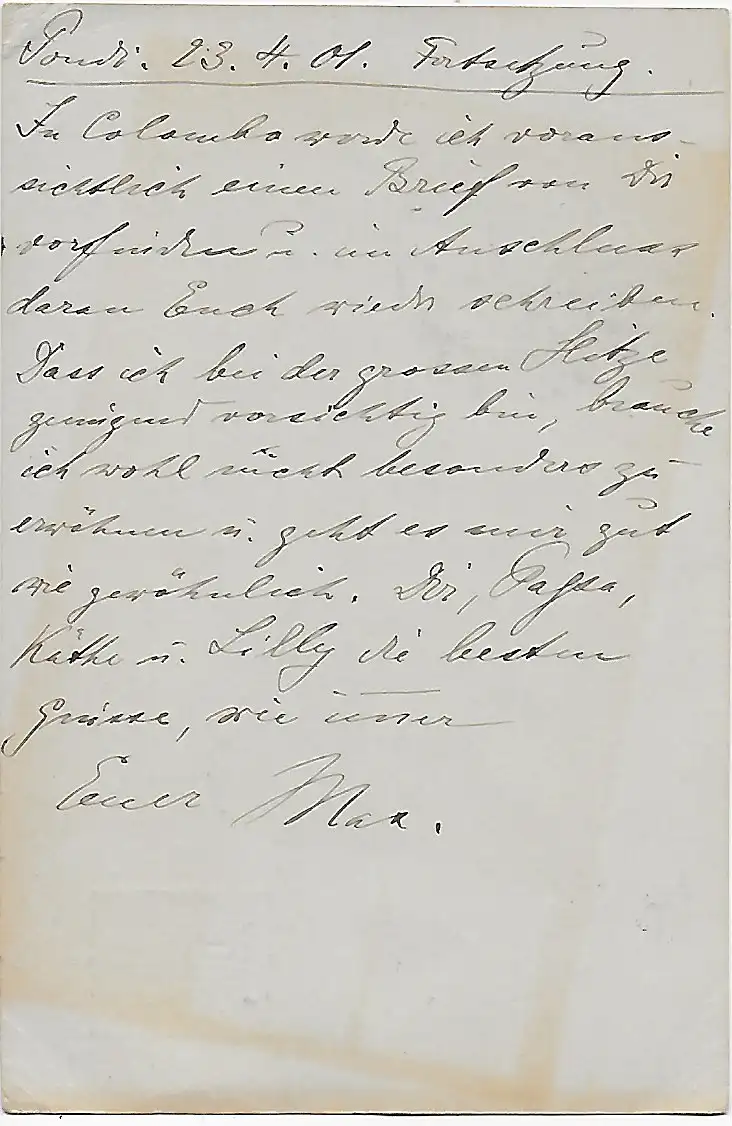 Pondi. 23. 4. 01. Fortsetzung.
In Colombo werde ich voraus-
sichtlich einen Brief von Dir
vorfinden u. im Anschluss
daran Euch wieder schreiben.
Dass ich bei der grossen Hitze
genügend vorsichtig bin, brauche
ich wohl nicht besonders zu
erwähnen u. geht es mir gut
wie gewöhnlich. Dir, Papa,
Käthe u. Lilly die besten
Grüsse, wie immer
Euer Max.